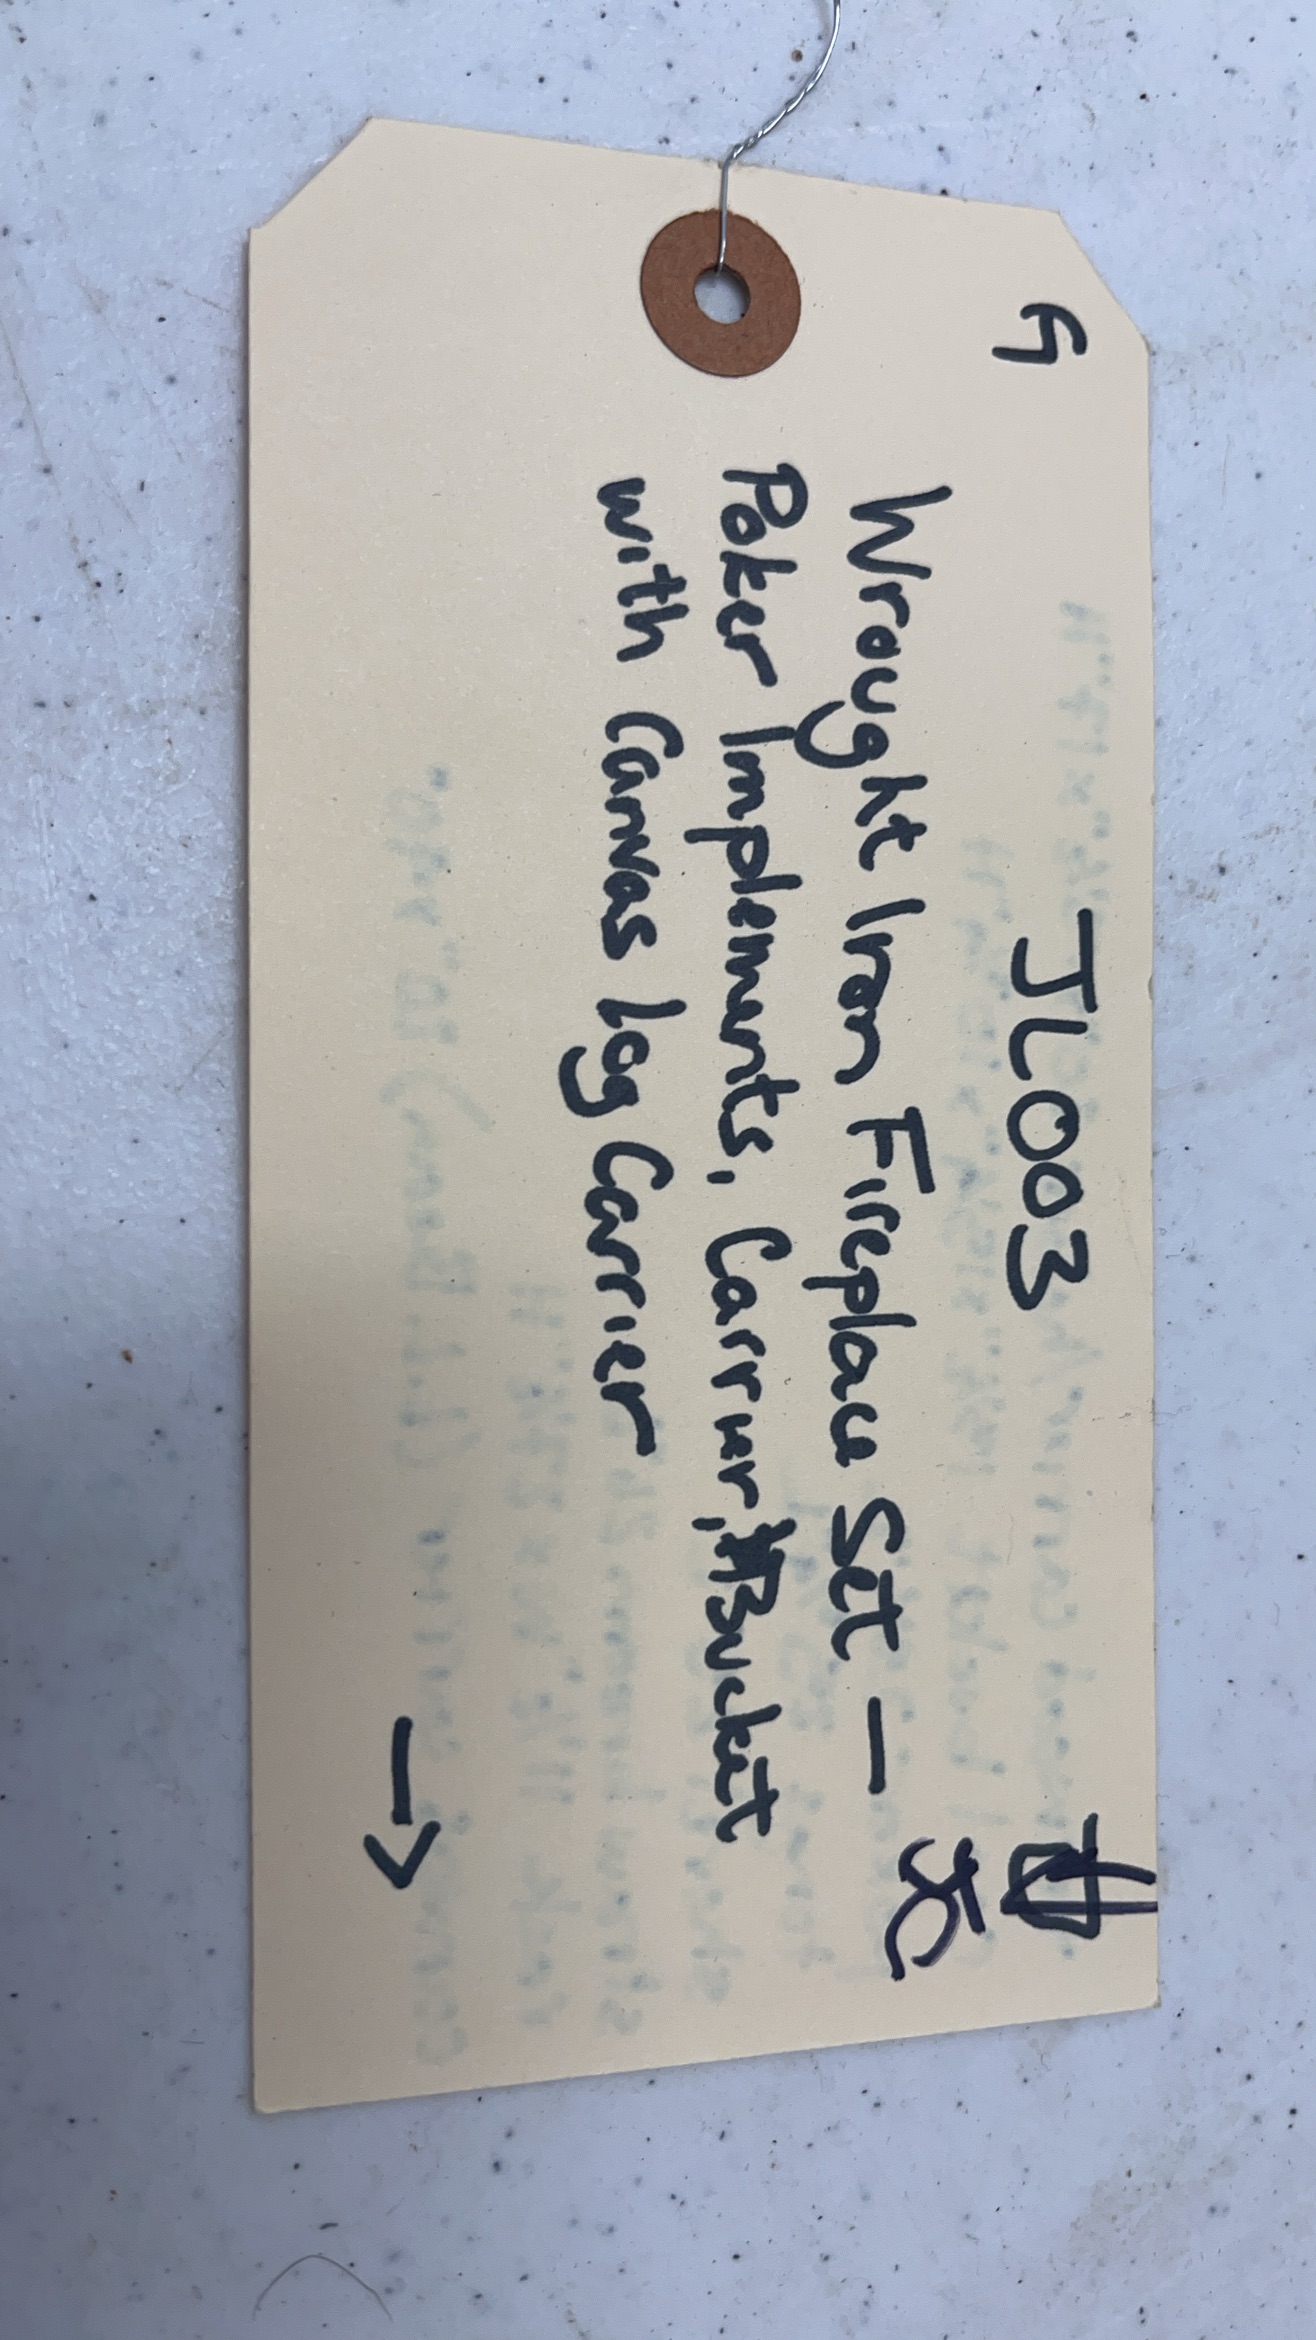 JL003
Wrought Iron Fireplace Set —
Poker Implements, Carrier, Bucket
with Canvas Log Carrier
JC
→